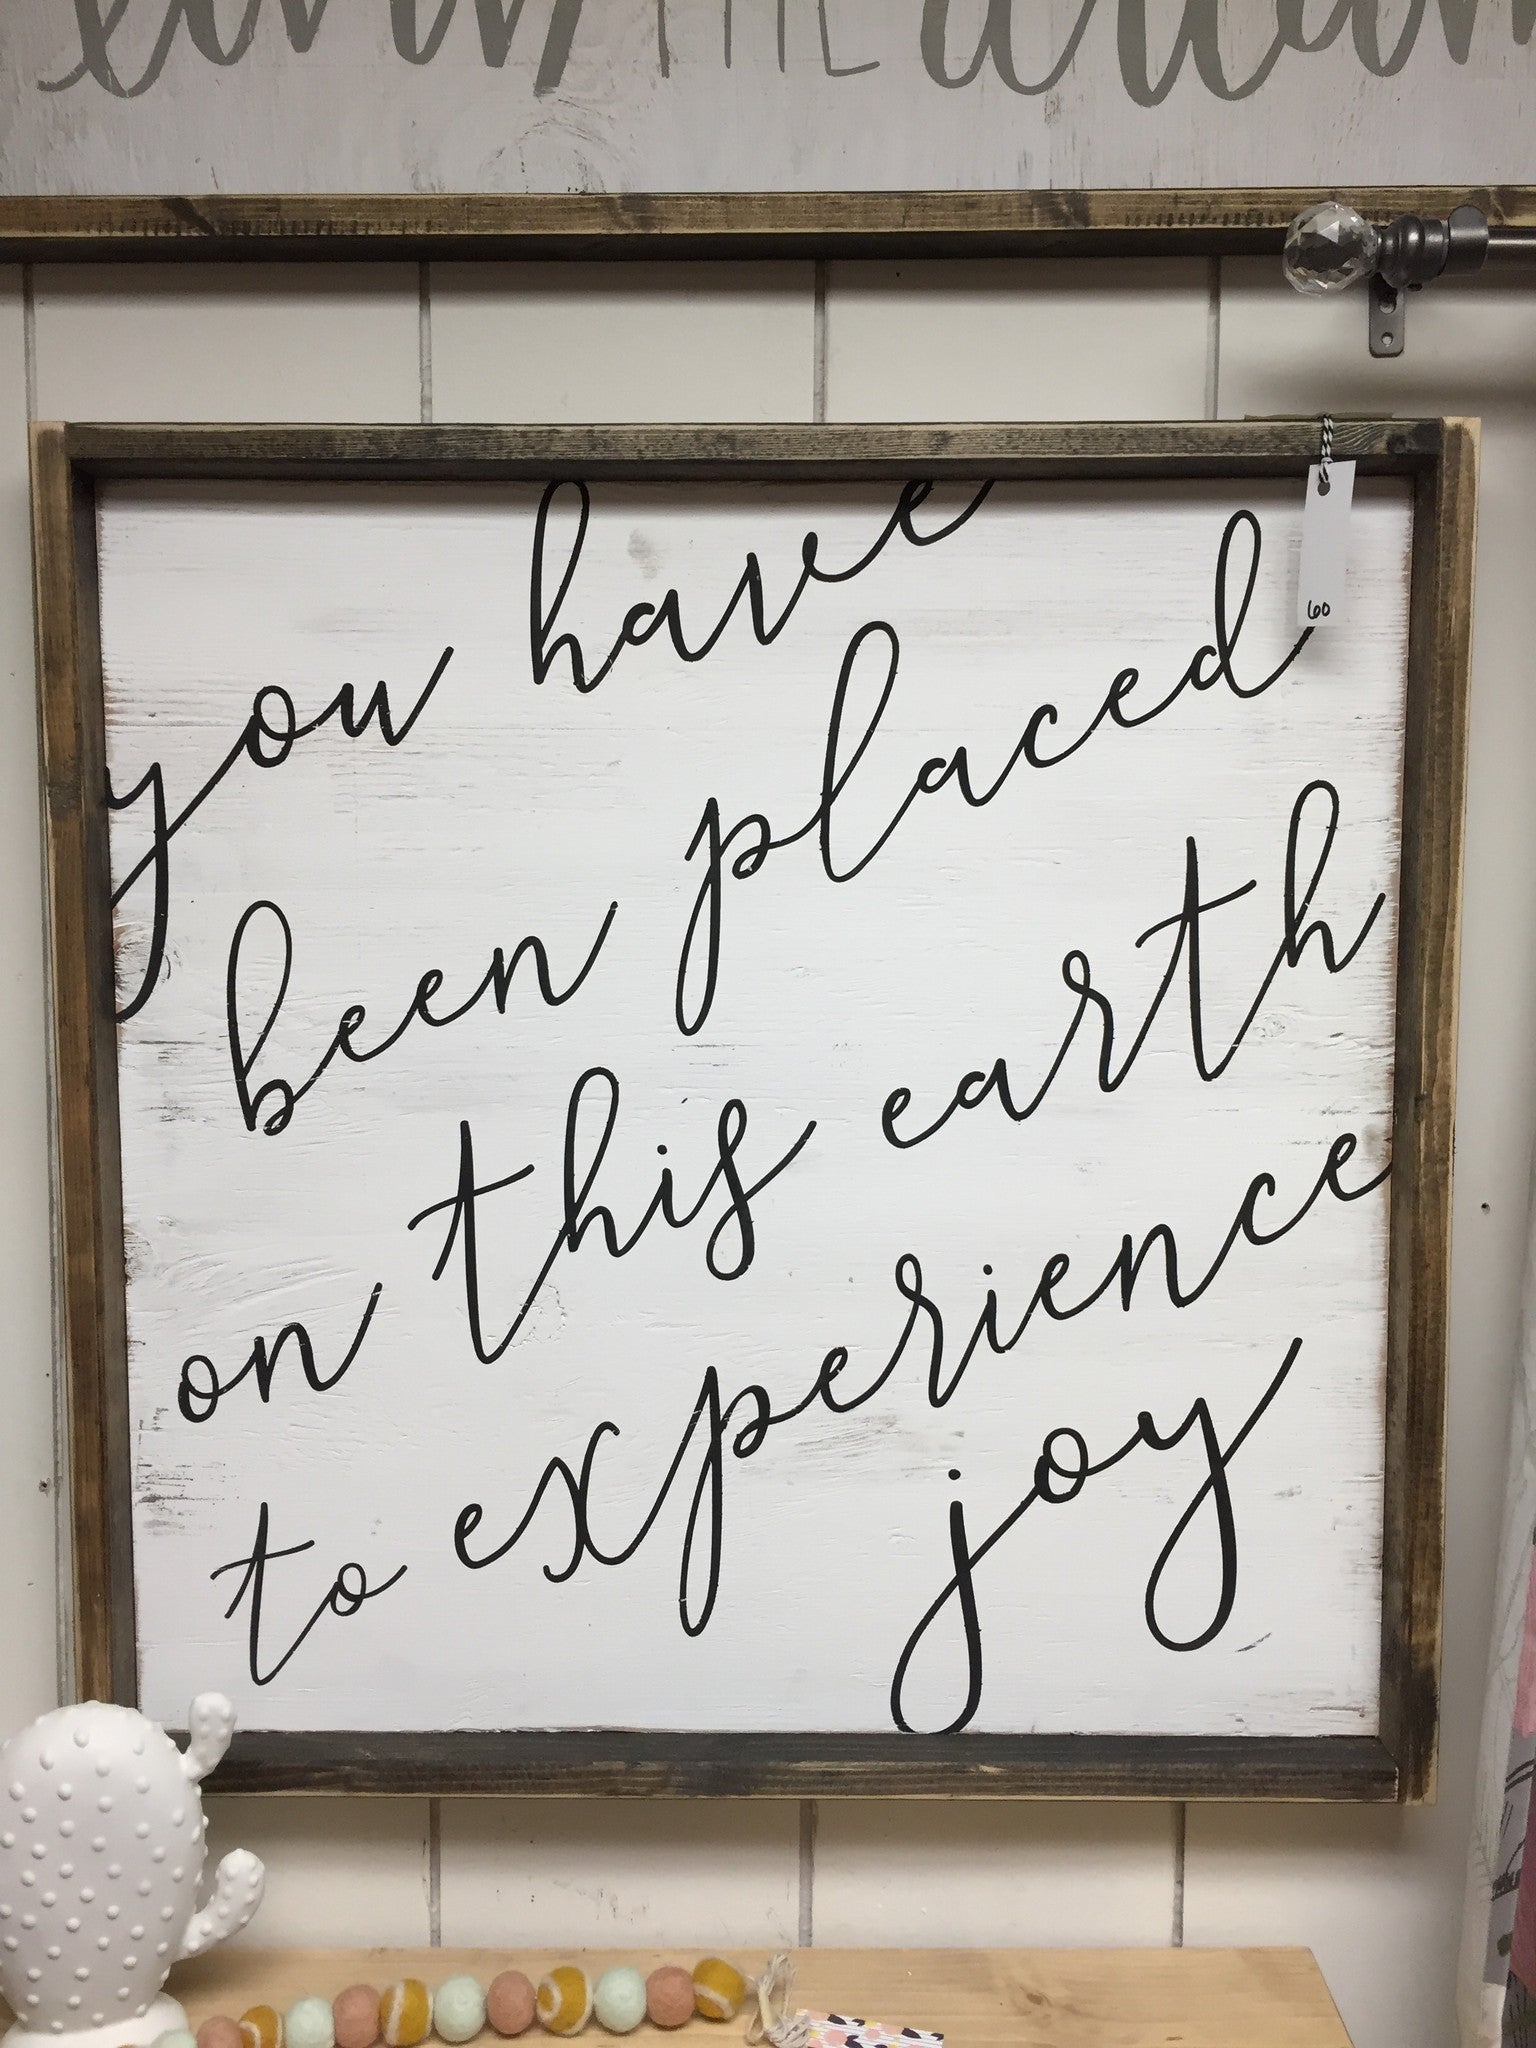 THE
you have
60
been placed
on this earth
to experience
joy